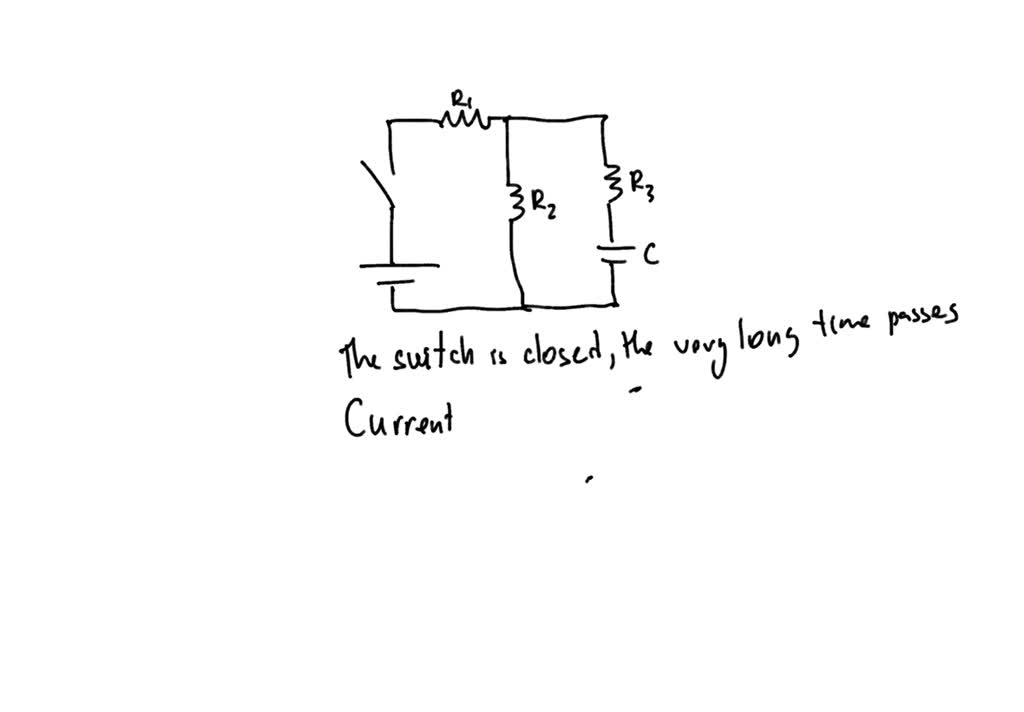 R₁
R₂
R₃
C
The switch is closed, the very long time passes
Current